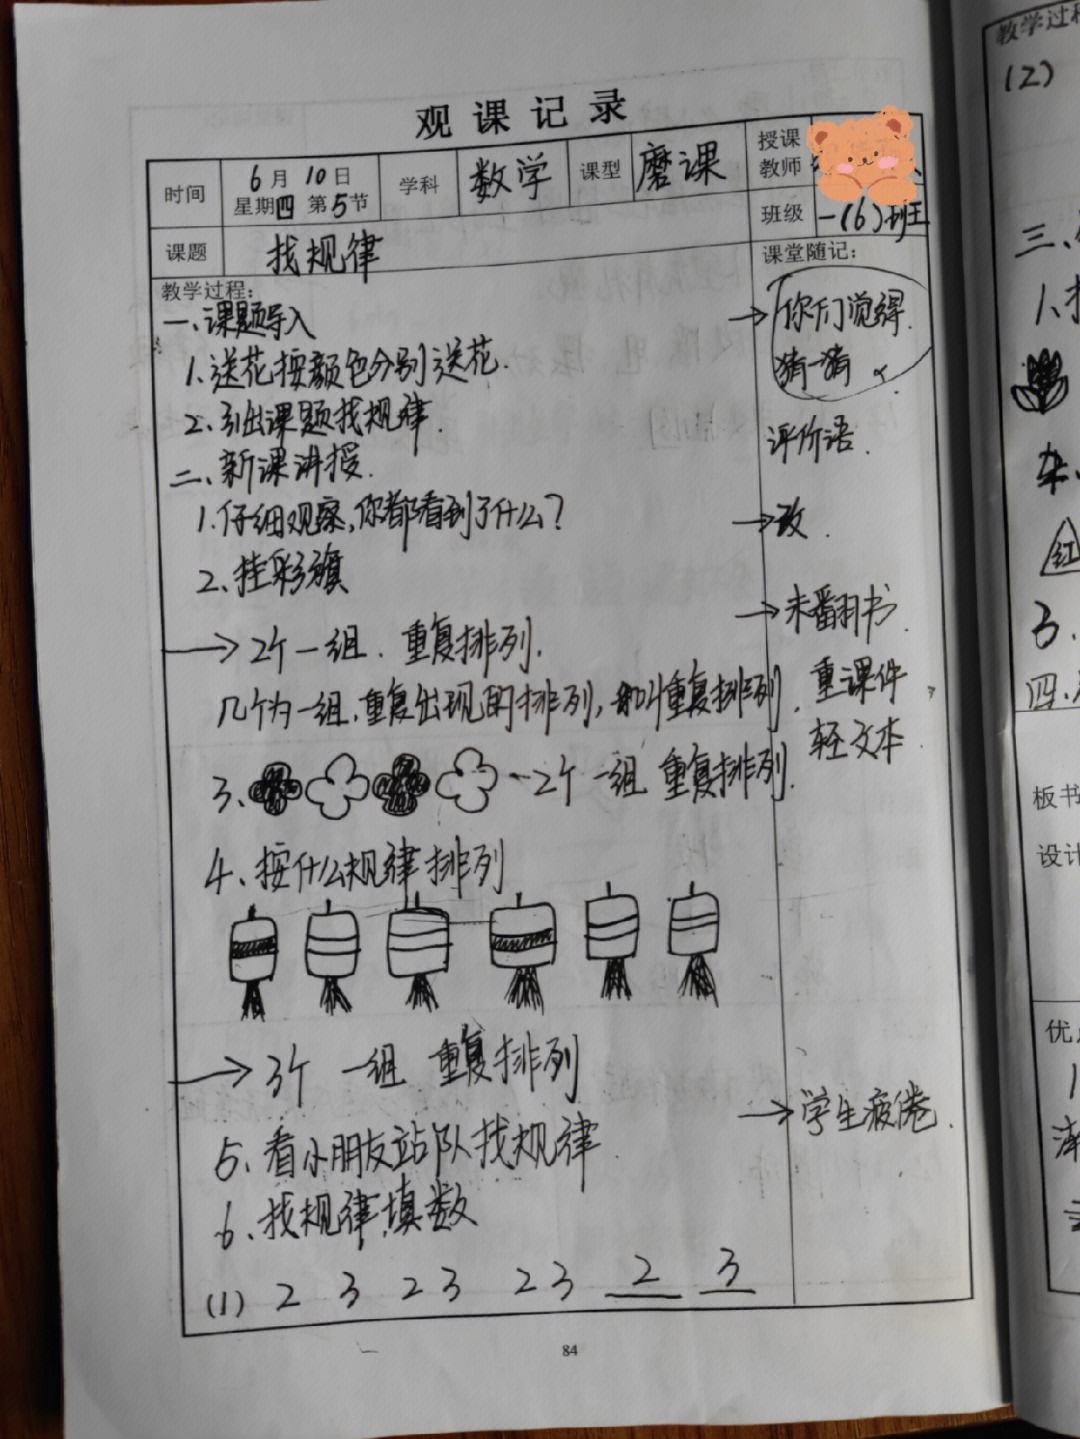 观课记录
时间 6月10日 星期四 第5节 学科 数学 课型 磨课 授课教师
班级 一(6)班
课题 找规律
教学过程:
课堂随记:
一、课题导入
1.送花按颜色分别送花.
2.引出课题找规律.
二、新课讲授.
1.仔细观察,你都看到了什么?
2、挂彩旗
→2个一组.重复排列.
几个为一组,重复出现的排列,叫重复排列.
3、 2个一组 重复排列.
4、按什么规律排列
→3个 一组 重复排列
5、看小朋友站队找规律
6、找规律填数
(1) 2 3 2 3 2 3 2 3
→你们觉得.
猜一猜
评价语.
→改.
→未翻书.
重课件
轻文本
→学生疲倦.
84
教学过程
(2)
三、
1、
红
3.
四、
板书
设计
优
1